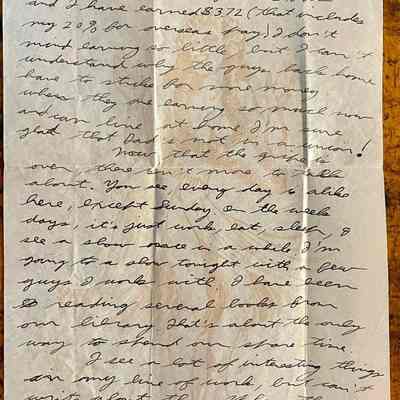 and I have earned $372 (that includes
my 20% for overseas pay) I don't
mind earning so little but I can't
understand why the guys back home
have to strike for more money
when they are earning so much now
and can live at home. I'm sure
glad that Dad's not in a union!
Now that the is
over, there isn't more to talk
about. You see, every day is alike
here, except Sunday. On the week
days, it's just work, eat, sleep, &
see a show once in a while. I'm
going to a show tonight with a few
guys I work with. I have been
reading several books from
our library. That's about the only
way to spend our spare time.
I see a lot of interesting things
in my line of work, but can't
write about